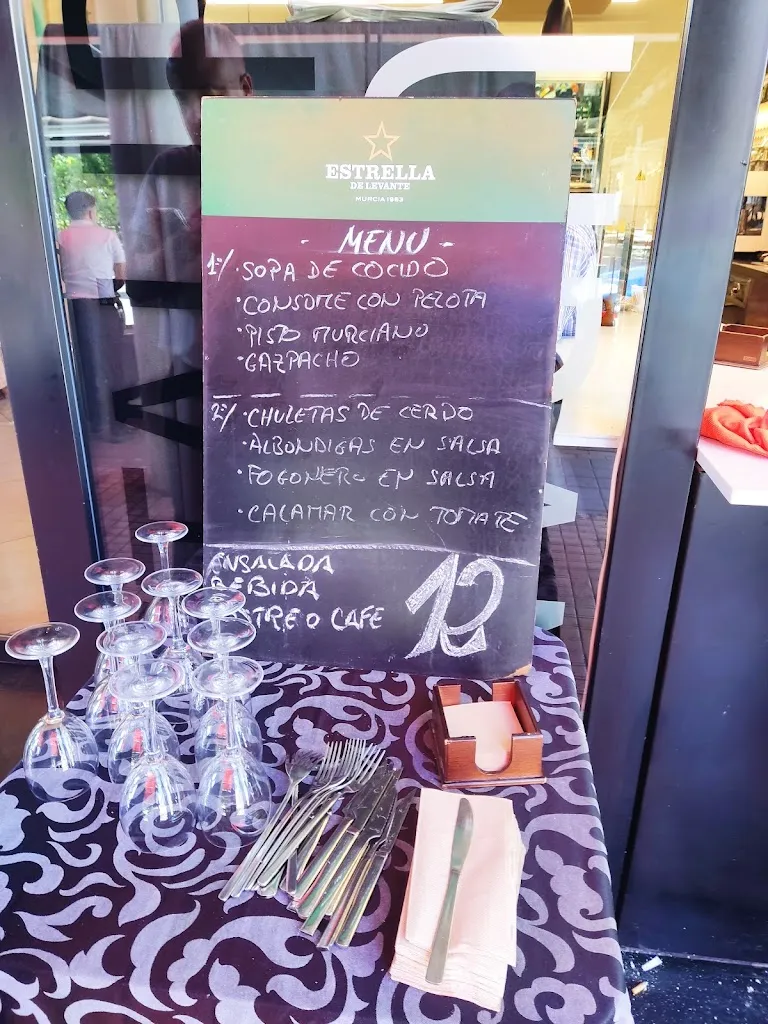 ESTRELLA
DE LEVANTE
MURCIA 1963
- MENU -
1º/ · SOPA DE COCIDO
· CONSOME CON PELOTA
· PISTO MURCIANO
· GAZPACHO
2º/ · CHULETAS DE CERDO
· ALBONDIGAS EN SALSA
· FOGONERO EN SALSA
· CALAMAR CON TOMATE
ENSALADA
BEBIDA
STRE O CAFE
12